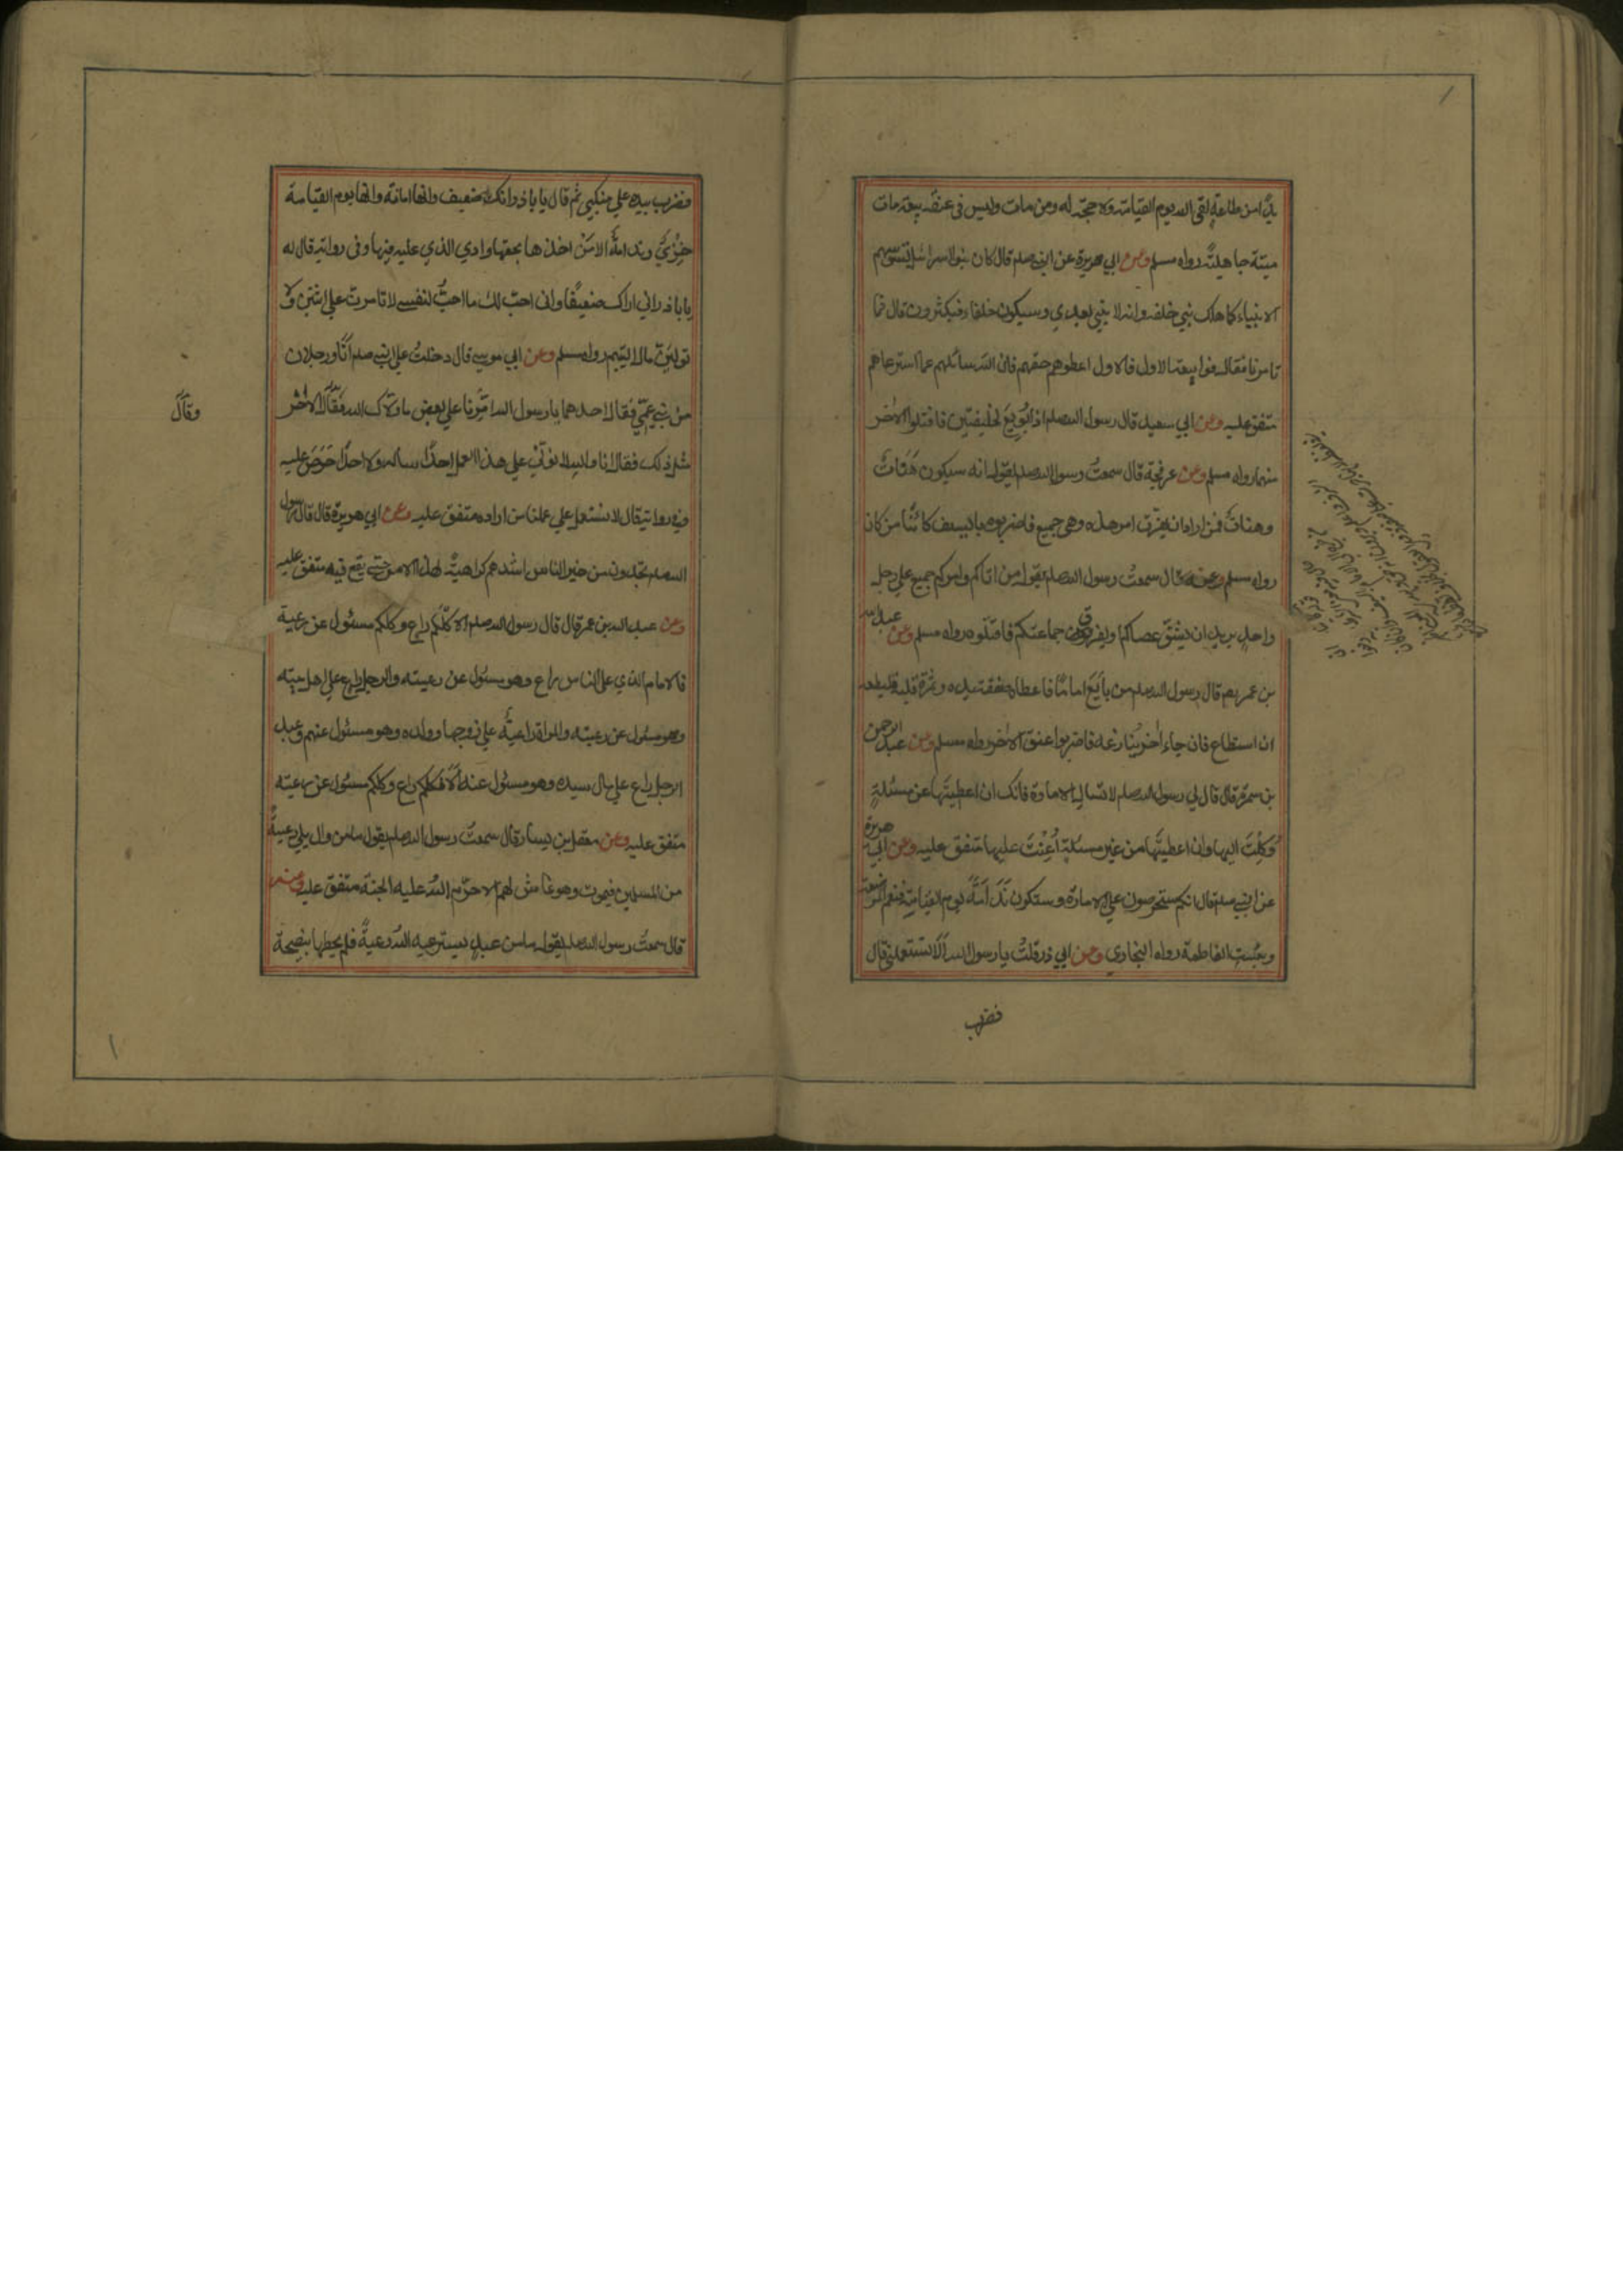 يدًا من طاعةٍ لقي الله يوم القيامة ولا حجّة له ومن مات وليس في عنقه بيعة مات
ميتة جاهليّة رواه مسلم وعن ابي هريرة عن النبي صلم قال كان بنو اسرائيل تسوسهم
الانبياء كلما هلك نبي خلفه وانه لا نبي بعدي وسيكون خلفاء فيكثرون قال فما
تامرنا فقال فوا بيعة الاول فالاول اعطوهم حقهم فان الله سائلهم عما استرعاهم
متفق عليه وعن ابي سعيد قال رسول الله صلم اذا بُويع لخليفتين فاقتلوا الاٰخر
منهما رواه مسلم وعن عرفجة قال سمعتُ رسول الله صلم يقول انه سيكون هَنَاتٌ
وهناتٌ فمن اراد ان يفرّق امر هذه وهي جميع فاضربوه بالسيف كائنًا من كان
رواه مسلم وعنه قال سمعتُ رسول الله صلم يقول من اتاكم وامركم جميع علي رجل
واحدٍ يريد ان يشقّ عصاكم او يفرق جماعتكم فاقتلوه رواه مسلم وعن عبد الله
بن عمر بهم قال رسول الله صلم من بايَع امامًا فاعطاه صفقة يده وثمرة قلبه فليطعه
ان استطاع فان جاء اٰخر ينازعه فاضربوا عنق الاٰخر رواه مسلم وعن عبد الرحمن
بن سمرة قال قال لي رسول الله صلم لا تسال الامارة فانك ان اعطيتَها عن مسئلةٍ
وُكِلْتَ اليها وان اعطيتَها من غير مسئلةٍ اُعِنْتَ عليها متفق عليه وعن ابي هريرة
عن النبي صلم قال انكم ستحرصون علي الامارة وستكون نَدَامَةً يوم القيامة فنعم المرضعة
وبئست الفاطمة رواه البخاري وعن ابي ذر قلتُ يا رسول الله اَلَا تستعملني قال
فضرب
فضرب بيده علي منكبي ثم قال يا باذر انك ضعيف وانها امانة وانها يوم القيامة
خِزْيٌ وندامةٌ الا مَنْ اخذها بحقها وادي الذي عليه فيها وفي رواية قال له
يا باذر اني اراك ضعيفًا واني احبّ لك ما احبّ لنفسي لا تامرنّ علي اثنين ولا
تولّينّ مال اليتيم رواه مسلم وعن ابي موسي قال دخلتُ علي النبي صلم اَنَا ورجلان
من بني عمّي فقال احدهما يا رسول الله امِّرْنا علي بعض ما ولّاك الله فقال الاٰخر
مثل ذلك فقال انا والله لا نولّي علي هذا العمل احدًا ساله ولا احدًا حَرَصَ عليه
وفي رواية قال لا نستعمل علي عملنا من اراده متفق عليه وعن ابي هريرة قال قال رسول
الله صلم تجدون من خير الناس اشدهم كراهيةً لهذا الامر حتي يقع فيه متفق عليه
وعن عبد الله بن عمر قال قال رسول الله صلم الا كلّكم راع وكلكم مسئول عن رعية
فالامام الذي علي الناس راع وهو مسئول عن رعيته والرجل راع علي اهل بيته
وهو مسئول عن رعيته والمراة راعيةٌ علي زوجها وولده وهو مسئول عنهم وعبد
الرجل راع علي مال سيده وهو مسئول عنه اَلَا فكلكم راع وكلكم مسئول عن رعيته
متفق عليه وعن معقل بن يسار قال سمعتُ رسول الله صلم يقول ما من وال يلي رعيةً
من المسلمين فيموت وهو غاش لهم الا حرّم اللهُ عليه الجنة متفق عليه وعنه
قال سمعتُ رسول الله صلم يقول ما من عبدٍ يسترعيه اللهُ رعيةً فلم يحطها بنصيحة
وقَالَ